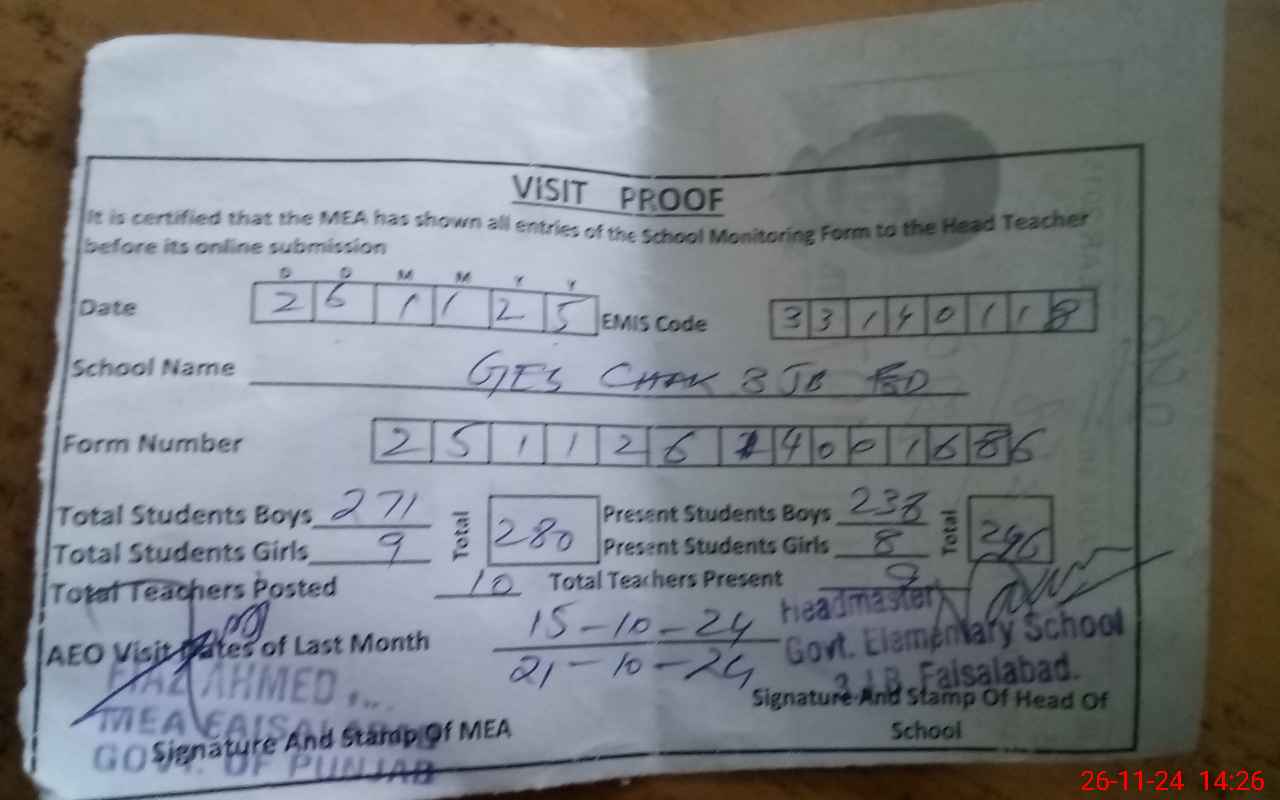 VISIT PROOF
It is certified that the MEA has shown all entries of the School Monitoring Form to the Head Teacher
before its online submission
D D M M Y Y
Date 2 6 1 1 2 5 EMIS Code 3 3 1 4 0 1 1 8
School Name GES CHAK 3 JB FSD
Form Number 2 5 1 1 2 6 4 0 0 1 6 8 6
Total Students Boys 271 Total 280 Present Students Boys 238 Total 246
Total Students Girls 9 Present Students Girls 8
Total Teachers Posted 10 Total Teachers Present 9
AEO Visit Dates of Last Month 15-10-24
21-10-24
Headmaster
Govt. Elementary School
3 J.B. Faisalabad.
AHMED
MEA FAISALABAD
GOVT. OF PUNJAB
Signature And Stamp Of MEA
Signature And Stamp Of Head Of
School
26-11-24 14:26